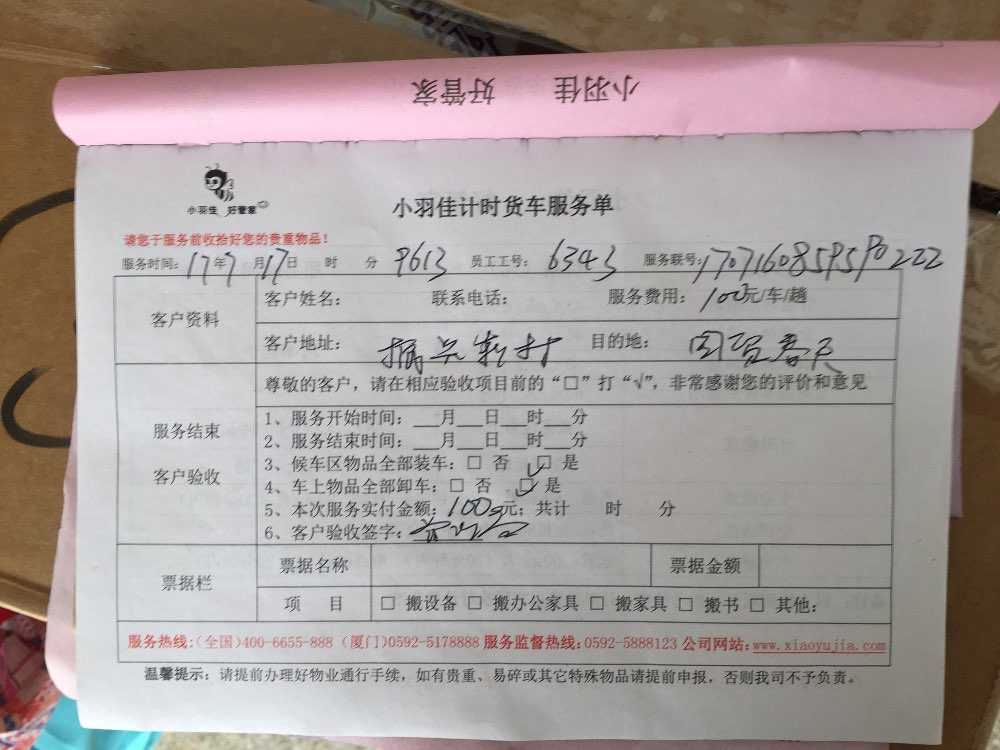 小羽佳 好管家
小羽佳 好管家
小羽佳计时货车服务单
请您于服务前收拾好您的贵重物品！
服务时间：17年7月17日 时 分 9613 员工工号：6343 服务联号：
客户资料
客户姓名： 联系电话： 服务费用：100元/车/趟
客户地址： 目的地：
服务结束
客户验收
尊敬的客户，请在相应验收项目前的“□”打“√”，非常感谢您的评价和意见
1、服务开始时间：___月___日___时___分
2、服务结束时间：___月___日___时___分
3、候车区物品全部装车：□ 否 □ 是
4、车上物品全部卸车：□ 否 □ 是
5、本次服务实付金额：100元；共计 时 分
6、客户验收签字：
票据栏
票据名称 票据金额
项 目 □ 搬设备 □ 搬办公家具 □ 搬家具 □ 搬书 □ 其他：
服务热线：(全国)400-6655-888 (厦门)0592-5178888 服务监督热线：0592-5888123 公司网站：www.xiaoyujia.com
温馨提示：请提前办理好物业通行手续，如有贵重、易碎或其它特殊物品请提前申报，否则我司不予负责。